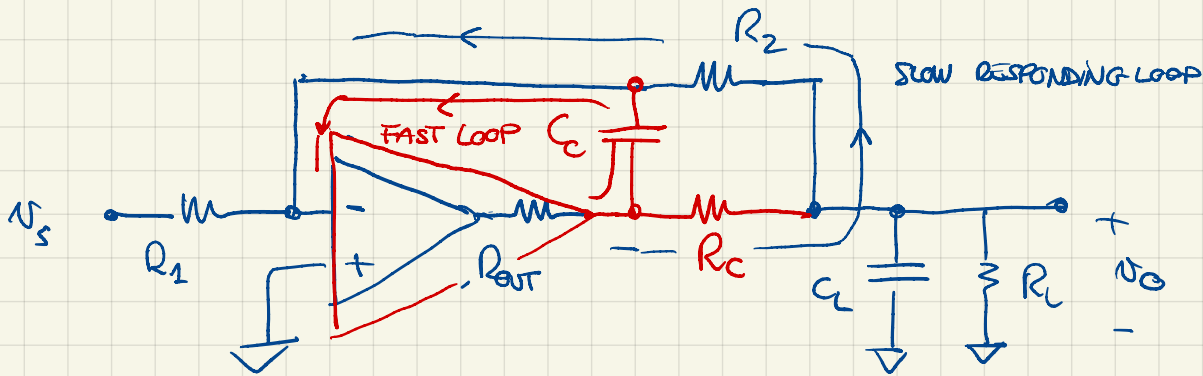 R2
SLOW RESPONDING LOOP
FAST LOOP
Cc
vs
R1
-
+
ROUT
Rc
CL
RL
+
vo
-